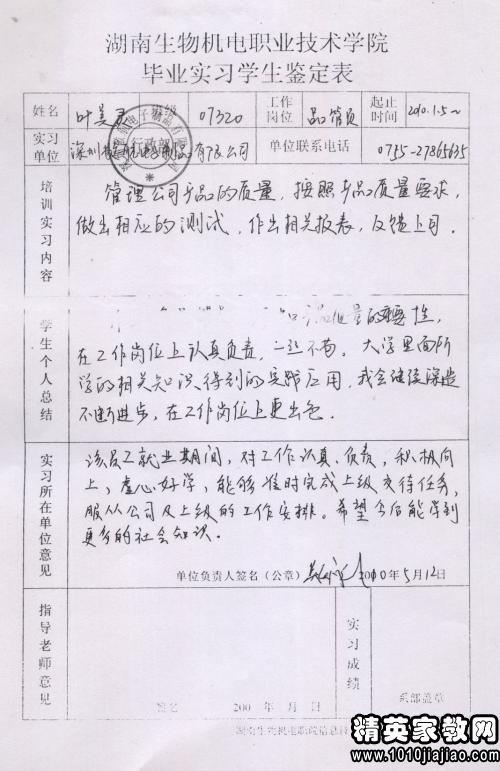 湖南生物机电职业技术学院
毕业实习学生鉴定表
姓名 叶美灵 班级 07320 工作岗位 品管员 起止时间 2010.1.5~
实习单位 深圳 电子制品有限公司 单位联系电话 0755-27865635
培训实习内容
管理公司产品的质量，按照产品质量要求，
做出相应的测试，作出相关报表，反馈上司．
学生个人总结
知 品质量的重要性，
在工作岗位上认真负责，一丝不苟．大学里面所
学的相关知识得到的实践应用，我会继续深造
不断进步，在工作岗位上更出色．
实习所在单位意见
该员工就业期间，对工作认真、负责，积极向
上，虚心好学，能够准时完成上级交待任务，
服从公司及上级的工作安排。希望今后能学到
更多的社会知识．
单位负责人签名（公章） 2010年5月12日
指导老师意见
实习成绩
签名 200 年 月 日
系部盖章
湖南生物机电职院信息技
精英家教网
www.1010jiajiao.com